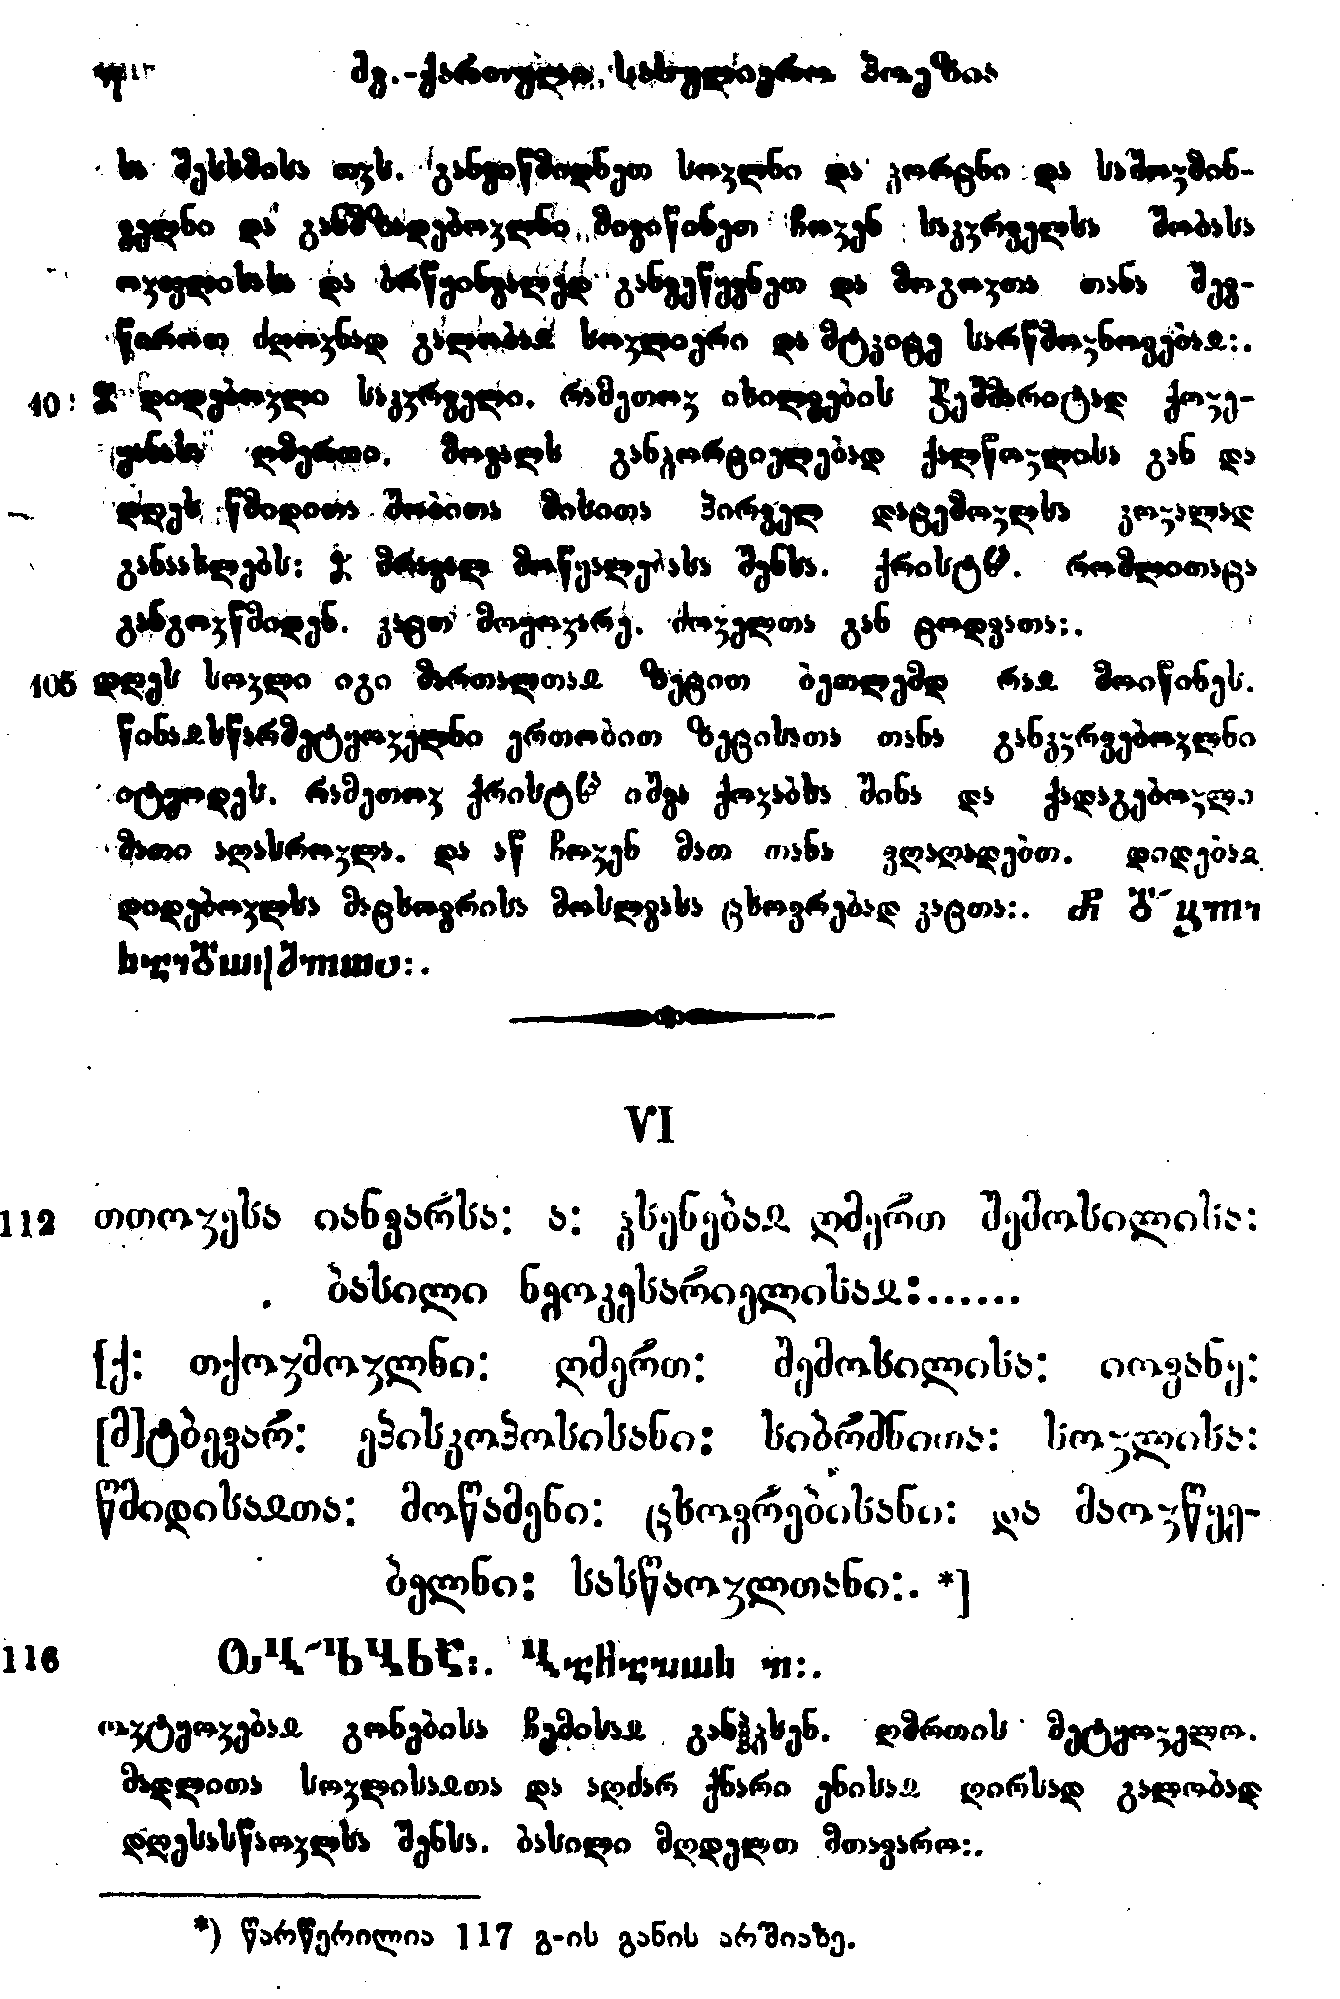 ძვ.-ქართული სასულიერო პოეზია
სა შესხმისა თჳს. განვიწმიდნეთ სოჳლნი და კორტნი და საშოჳმინ-
ველნი და განმზადებოჳლნი მივიწინეთ ჩოჳენ საკჳრველსა შობასა
ოჳფლისასა და ბრწყინვალედ განვეწყვნეთ და მოგოჳთა თანა შევ-
წიროთ ძღოჳნად გალობაჲ სოჳლიერი და მტკიცე სარწმოჳნოვებაჲ:.
ჵ დიდებოჳლი საკჳრველი. რამეთოჳ იხილვების ჭეშმარიტად ქოჳე-
ყანასა ღმერთი. მოვალს განკორციელებად ქალწოჳლისა გან და
დღეს წმიდითა შობითა მისითა პირველ დაცემოჳლსა კოჳალად
განაახლებს: ჵ მრავალ მოწყალებასა შენსა. ქრისტჱ. რომლითაცა
განგოჳწმიდენ. კაცთ მოყოჳარე. ძოჳელთა გან ცოდვათა:.
105 დღეს სოჳლი იგი მართალთაჲ ზეცით ბეთლემდ რაჲ მოიწინეს.
წინაჲსწარმეტყოჳელნი ერთობით ზეცისათა თანა განკჳრვებოჳლნი
იტყოდეს. რამეთოჳ ქრისტჱ იშვა ქოჳაბსა შინა და ქადაგებოჳლი
მათი აღასროჳლა. და აწ ჩოჳენ მათ თანა ვღაღადებთ. დიდებაჲ
დიდებოჳლსა მაცხოვრისა მოსლვასა ცხოვრებად კაცთა:.
VI
112 თთოჳესა იანვარსა: ა: კსენებაჲ ღმერთ შემოსილისა:
ბასილი ნეოკესარიელისაჲ:......
[ქ: თქოჳმოჳლნი: ღმერთ: შემოსილისა: იოვანე:
[მ]ტბევარ: ეპისკოპოსისანი: სიბრძნითა: სოჳლისა:
წმიდისაჲთა: მოწამენი: ცხოვრებისანი: და მაოჳწყე-
ბელნი: სასწაოჳლთანი:. *]
116
ოჳტყოჳებაჲ გონებისა ჩემისაჲ განჰკსენ. ღმრთის მეტყოჳელო.
მადლითა სოჳლისაჲთა და აღძარ ქნარი ენისაჲ ღირსად გალობად
დღესასწაოჳლსა შენსა. ბასილი მღდელთ მთავარო:.
*) წარწერილია 117 გ-ის განის არშიაზე.